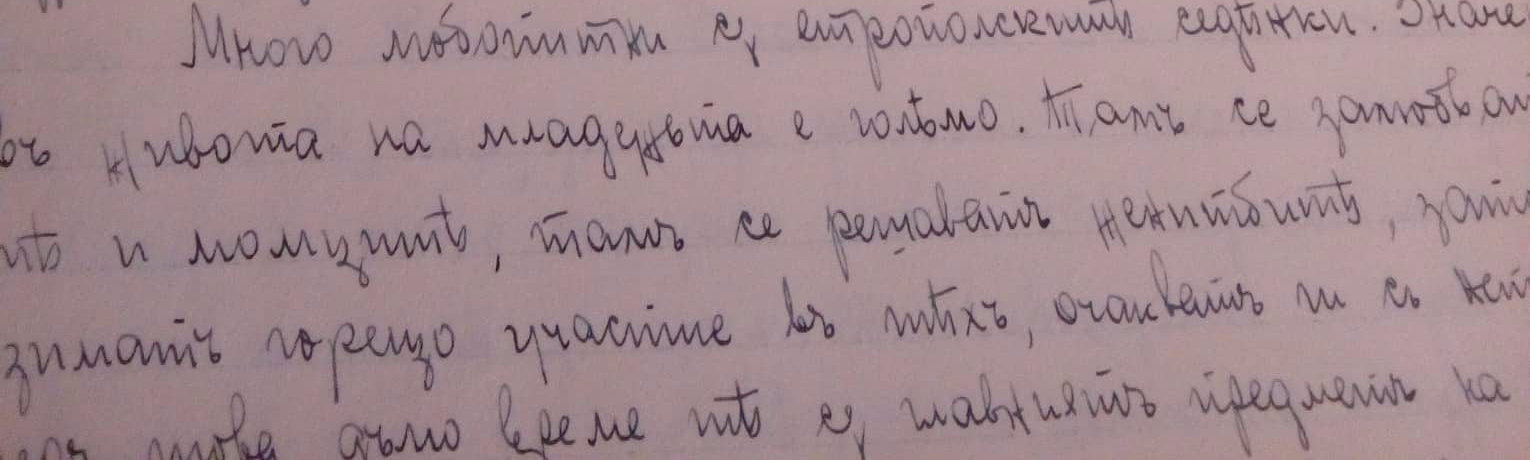 Много любопитни сѫ етрополскитѣ седѣнки. Значе
въ живота на младежьта е голѣмо. Тамъ се залюбват
тѣ и момцитѣ, тамъ се решаватъ женитбитѣ, зат
зиматъ горещо участие въ тѣхъ, очакватъ ги съ нет
това съмо време тѣ сѫ главниятъ предметъ на